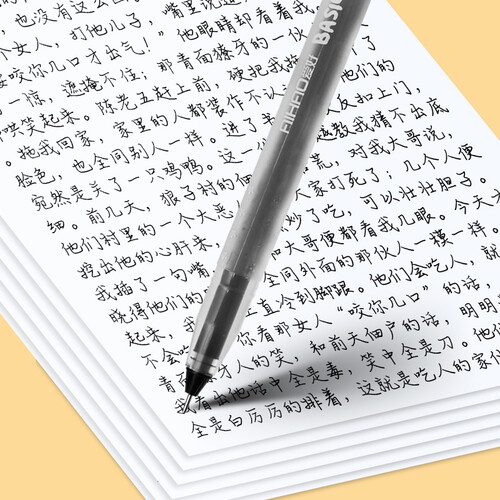 ，也没有这么 嘴里说
个女人，打他儿子， 他眼睛却看着我
要咬你几口才出气！”
一惊，遮掩不住；那青面獠牙的一伙
哄笑起来。陈老五赶上前，硬把我拖
。拖我回家，家里的人都装作不认
脸色，也全同别人一样。进了书 反扣上门，
宛然是关了一只鸡鸭。这一 教我猜不出底
细。前几天，狼子村的佃 荒，对我大哥说，
他们村里的一个大恶 大家打死了；几个人便
挖出他的心肝来， 炒了吃，可以壮壮胆子。
我插了一句嘴 和大哥便都看我几眼。今天才
晓得他们的 全同外面的那伙人一模一样。
起来， 上直冷到脚跟。他们会吃人，就
不会吃 你看那女人“咬你几口”的话，
青面獠牙人的笑，和前天佃户的话，明明
我看出他话中全是毒，笑中全是刀。他们
全是白厉厉的排着，这就是吃人的家伙
AIHAO爱好 BASIC